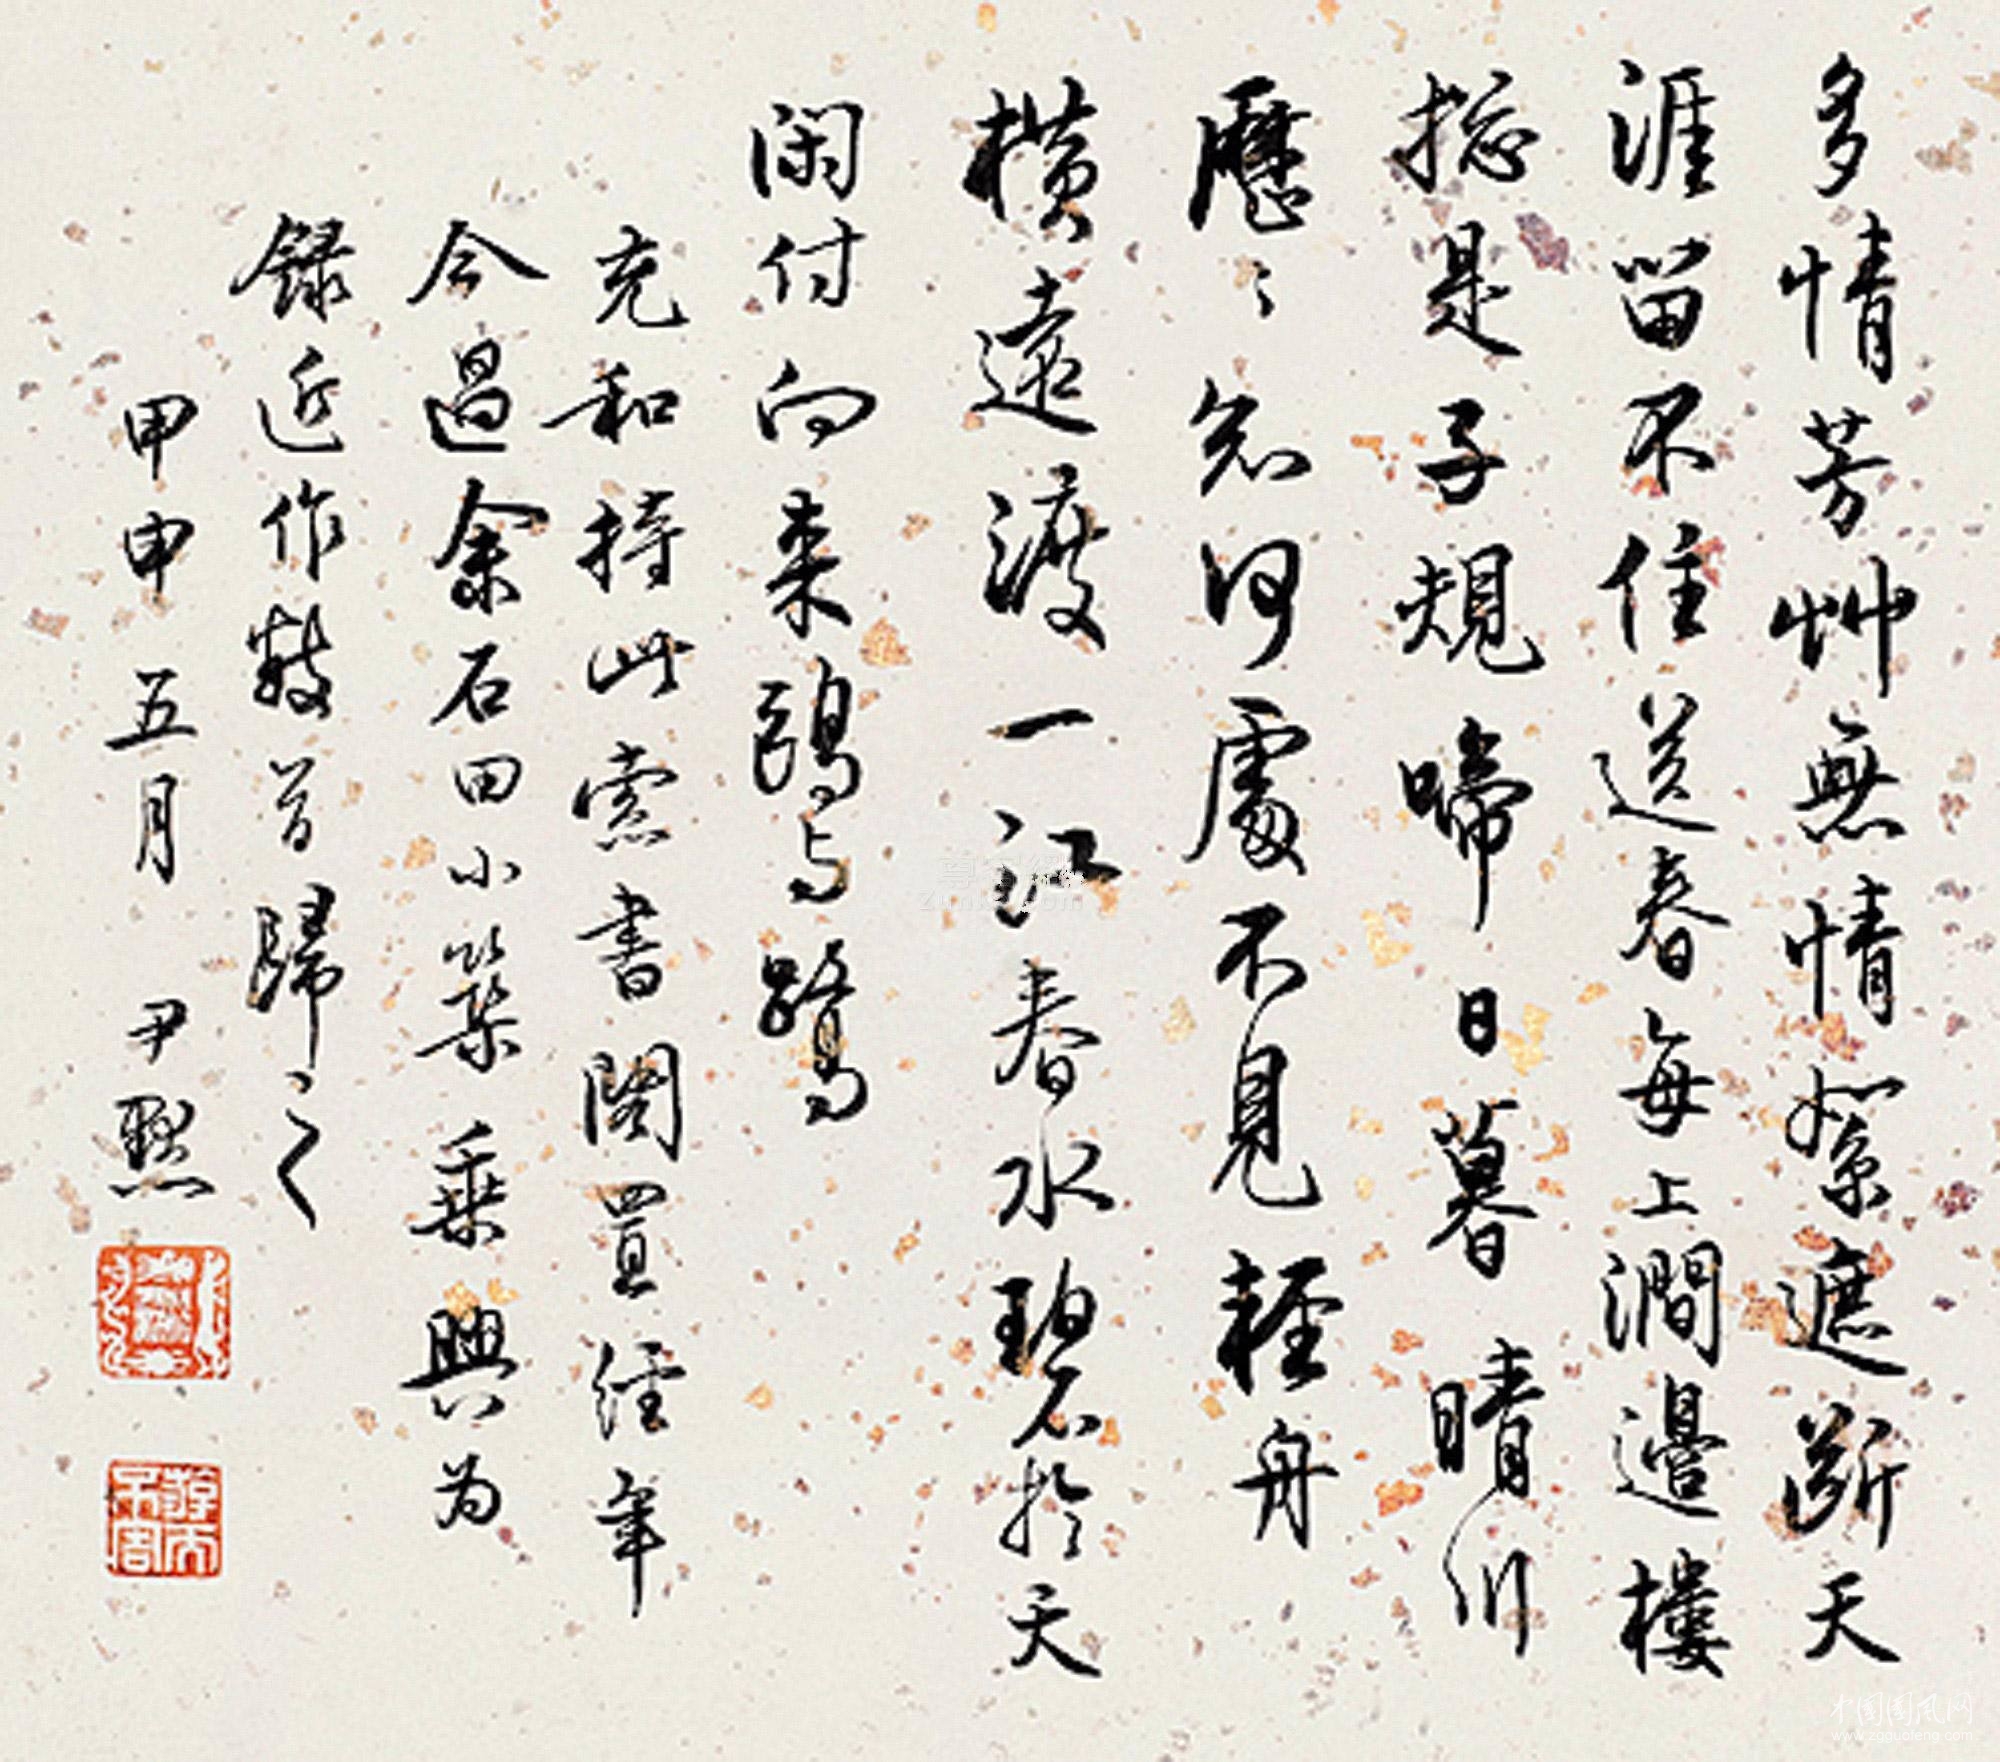 多情芳艸無情絮遮斷天
涯留不住送春每上澗邊樓
捴是子規啼日暮 晴川
歷〻知何處不見輕舟
橫遠渡一江春水碧於天
閑付向来鷗与鷺
充和持此索書閣置經年
今過余石田小築乗興为
録近作數首歸之
甲申五月 尹默
中国国风网
www.zgguofeng.com